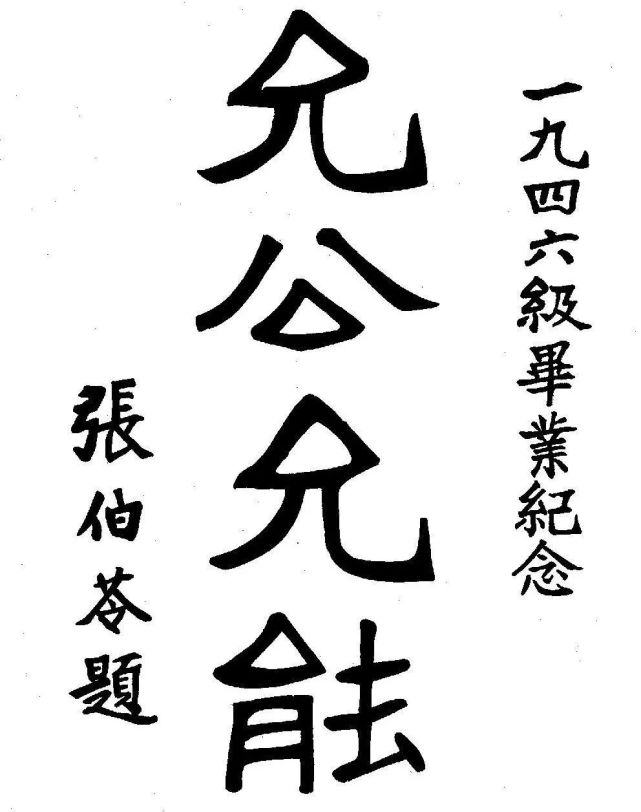 一九四六級畢業紀念
允公允能
張伯苓題